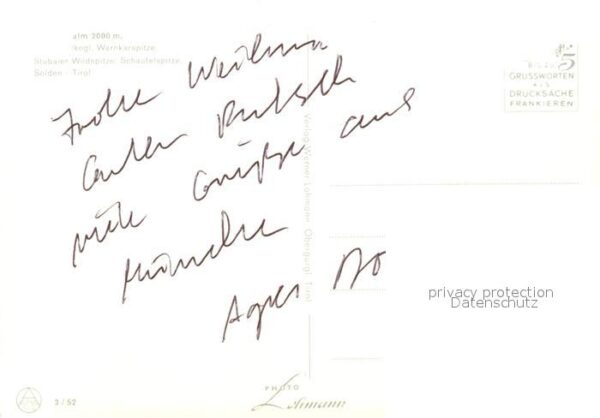 alm 2000 m.
kogl. Warnkarspitze.
Stubaier Wildspitze. Schaufelspitze.
Sölden - Tirol
Frohe Weihna
Guten Rutsch
viele Grüße aus
München
Agnes
BIS ZU 5
GRUSSWORTEN
ALS
DRUCKSACHE
FRANKIEREN
Verlag Werner Lohmann Obergurgl Tirol
privacy protection
Datenschutz
PHOTO
Lohmann
3 / 52